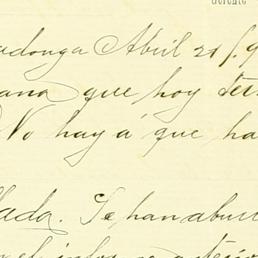 adonga Abril 21/.9
ana que hoy ter
No hay á que ha
lada. Se han abu